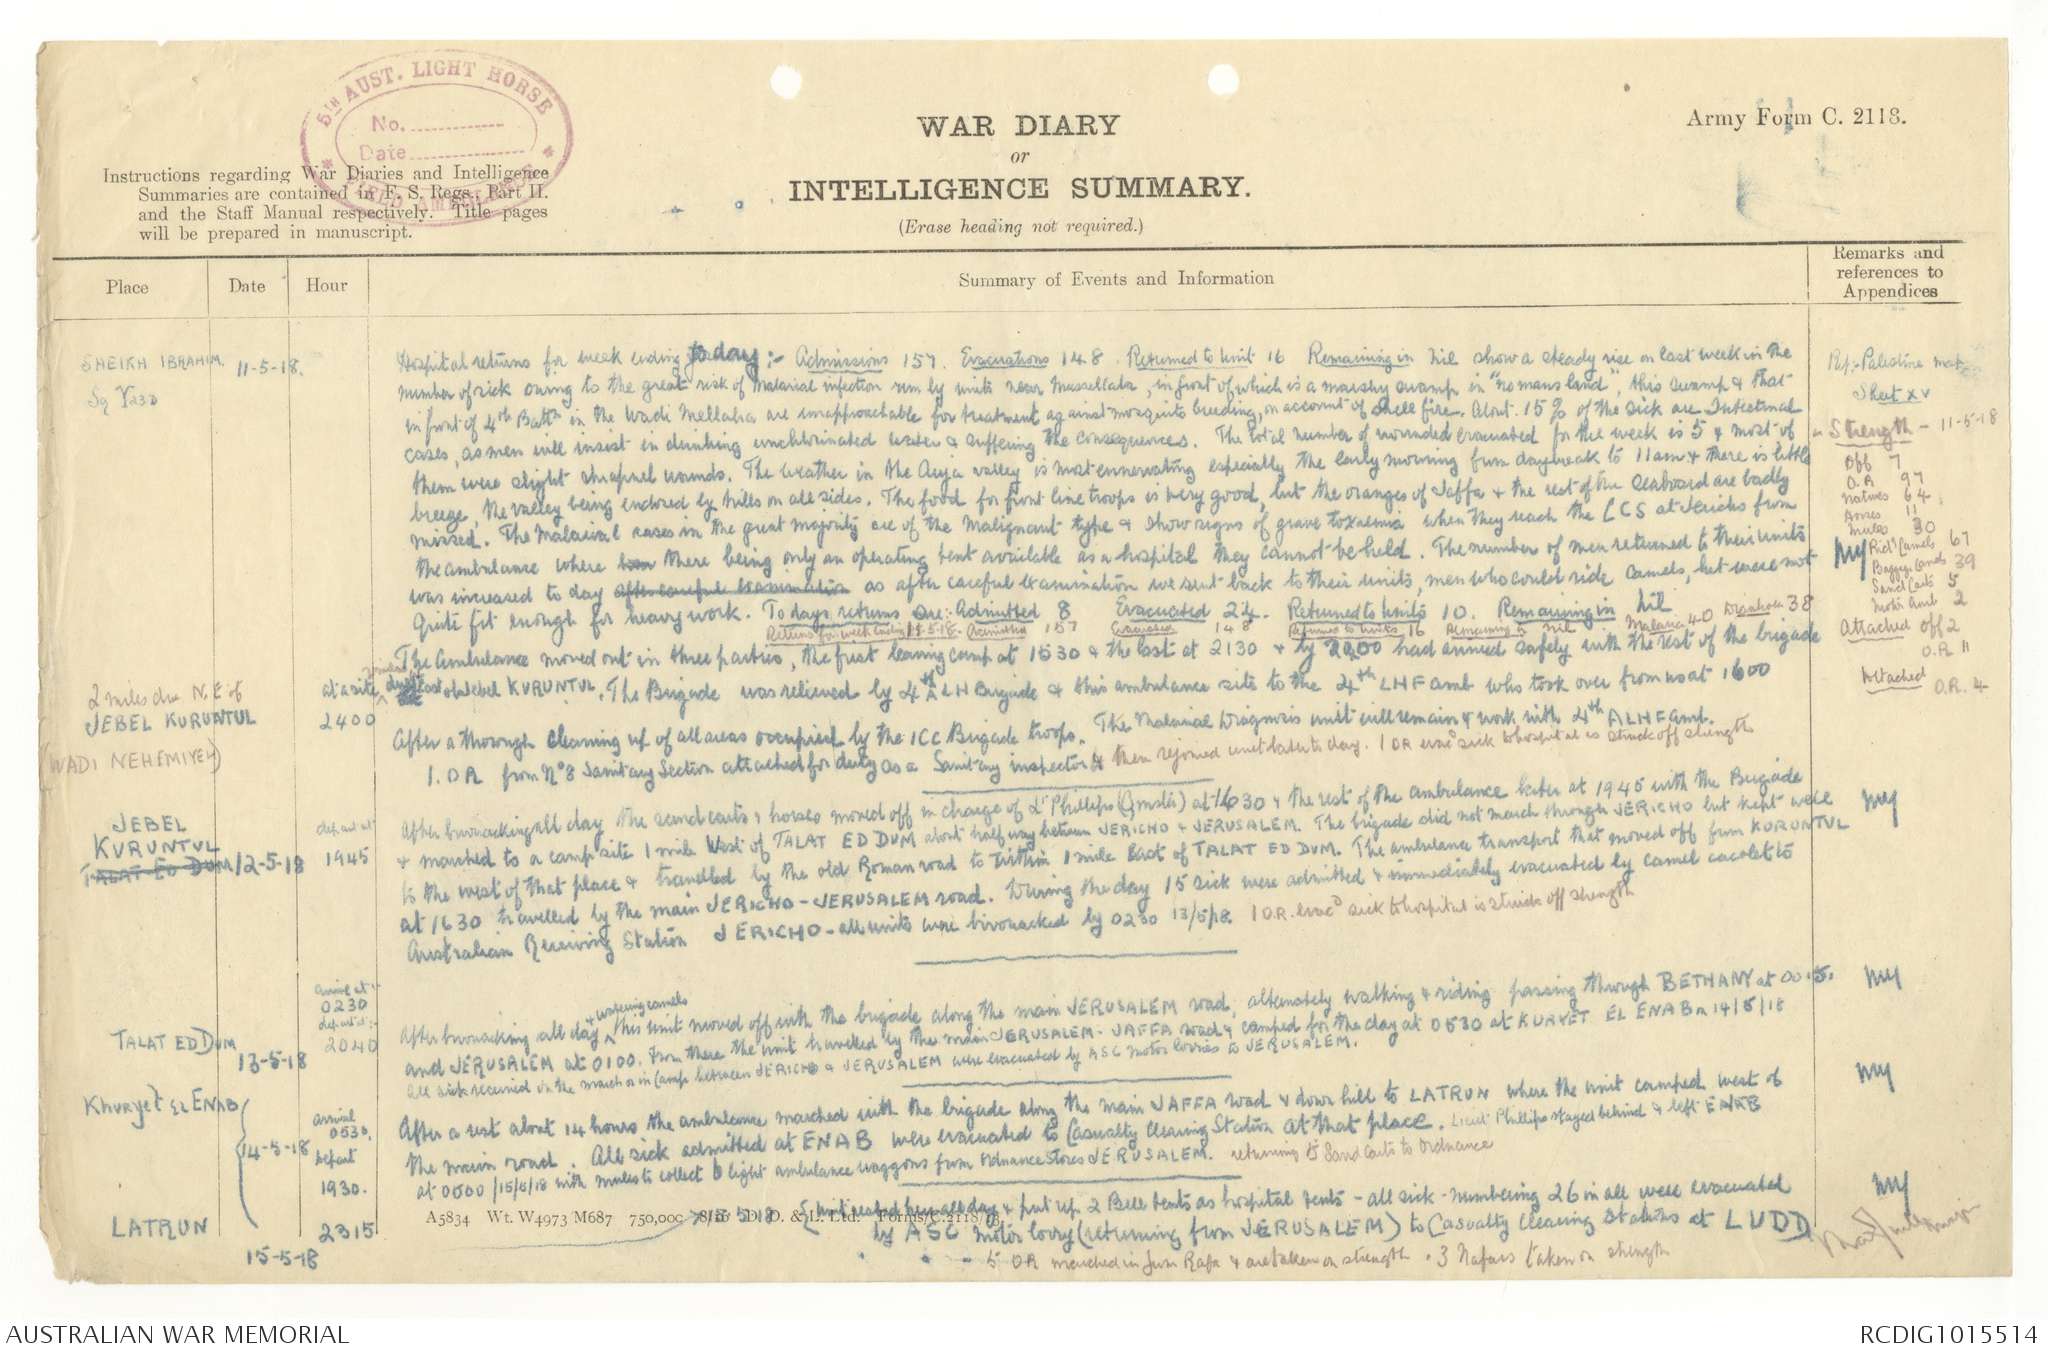 5TH AUST. LIGHT HORSE
No.
Date
FIELD AMBULANCE
WAR DIARY
or
INTELLIGENCE SUMMARY.
(Erase heading not required.)
Army Form C. 2118.
Instructions regarding War Diaries and Intelligence
Summaries are contained in F. S. Regs., Part II.
and the Staff Manual respectively. Title pages
will be prepared in manuscript.
Place
Date
Hour
Summary of Events and Information
Remarks and
references to
Appendices
SHEIKH IBRAHIM.
Sq Y23D
11-5-18.
Hospital returns for week ending today :- Admissions 157. Evacuations 148. Returned to Unit 16 Remaining in nil show a steady rise on last week in the
number of sick owing to the great risk of Malarial infection run by units near Mussellabe, in front of which is a marshy swamp in "no mans land", this swamp & that
in front of 4th Battn in the Wadi Mellaha are unapproachable for treatment against mosquito breeding, on account of shell fire. About 15% of the sick are Intestinal
cases, as men will insist in drinking unchlorinated water & suffering the consequences. The total number of wounded evacuated for the week is 5 & most of
them were slight shrapnel wounds. The weather in the Auja valley is most ennervating especially the early morning from daybreak to 11am & there is little
breeze, the valley being enclosed by hills on all sides. The food for front line troops is very good, but the oranges of Jaffa & the rest of the seaboard are badly
missed. The Malarial cases in the great majority are of the Malignant type & show signs of grave toxaemia when they reach the CCS at Jericho from
the ambulance where there being only an operating tent available as a hospital they cannot be held. The number of men returned to their units
was increased to day after careful examination as after careful examination we sent back to their units, men who could ride camels, but were not
quite fit enough for heavy work. To days returns are:- Admitted 8 Evacuated 24. Returned to Units 10. Remaining in nil
Returns for week ending 11-5-18. Admitted 157 Evacuated 148 Returned to Units 16 Remaining in nil Malaria 40 Diarrhoea 38
Ref:- Palestine map
Sheet XV
Strength - 11-5-18
Off 7
O.R 97
Natives 64
Horses 11
Mules 30
Rid'g Camels 67
Baggage Camels 39
Sand Carts 5
Motor Amb 2
Attached Off 2
O.R 11
Detached O.R. 4
2 miles due N.E of
JEBEL KURUNTUL
(WADI NEHEMIYEH)
2400
The Ambulance moved out in three parties, the first leaving camp at 1530 & the last at 2130 & by 2400 had arrived safely with the rest of the brigade
at a site East of Jebel KURUNTUL. The Brigade was relieved by 4th A L H Brigade & this ambulance site to the 4th LHF amb who took over from us at 1600
After a thorough cleaning up of all areas occupied by the ICC Brigade troops. The Malarial Diagnosis unit will remain & work with 4th ALHFamb.
1. OR from No 8 Sanitary Section attached for duty as a Sanitary inspector & then rejoined unit later to day. 1 OR evacd sick to hospital is struck off strength
JEBEL
KURUNTUL
TALAT ED DUM
12-5-18
depart at
1945
After bivouacking all day the sand carts & horses moved off in charge of Lt Phillips (Qmstr) at 1630 & the rest of the ambulance later at 1945 with the Brigade
& marched to a camp site 1 mile West of TALAT ED DUM about half way between JERICHO & JERUSALEM. The brigade did not march through JERICHO but kept well
to the west of that place & travelled by the old Roman road to within 1 mile East of TALAT ED DUM. The ambulance transport that moved off from KURUNTUL
at 1630 travelled by the main JERICHO-JERUSALEM road. During the day 15 sick were admitted & immediately evacuated by camel cacolet to
Australian Receiving Station JERICHO - all units were bivouacked by 0230 13/5/18. 1 O.R. evacd sick to hospital is struck off strength
TALAT ED DUM
13-5-18
arrival at:-
0230
depart at:-
2040
After bivouacking all day & watering camels this unit moved off with the brigade along the main JERUSALEM road, alternately walking & riding passing through BETHANY at 0015.
and JERUSALEM at 0100. From there the unit travelled by the main JERUSALEM-JAFFA road & camped for the day at 0530 at KURYET EL ENAB on 14/5/18
All sick received on the march or in Camp between JERICHO & JERUSALEM were evacuated by ASC motor lorries to JERUSALEM.
Khuryet EL ENAB
14-5-18
arrival
0530.
Depart
1930.
After a rest about 14 hours the ambulance marched with the brigade along the main JAFFA road & down hill to LATRUN where the unit camped west of
the main road. All sick admitted at ENAB were evacuated to Casualty Clearing Station at that place. Lieut Phillips stayed behind & left ENAB
at 0500/15/5/18 with mules to collect 6 light ambulance waggons from Ordnance Stores JERUSALEM. returning 5 Sand Carts to Ordnance
LATRUN
15-5-18
2315
15 5 18
Unit rested here all day & put up 2 Bell tents as hospital tents - all sick - numbering 26 in all were evacuated
by ASC motor lorry (returning from JERUSALEM) to Casualty Clearing Stations at LUDD
5 OR marched in from Rafa & are taken on strength. 3 Nafars taken on strength
A5834 Wt. W4973/M687 750,000 8/16 D. D. & L. Ltd. Forms/C.2118/13
AUSTRALIAN WAR MEMORIAL
RCDIG1015514